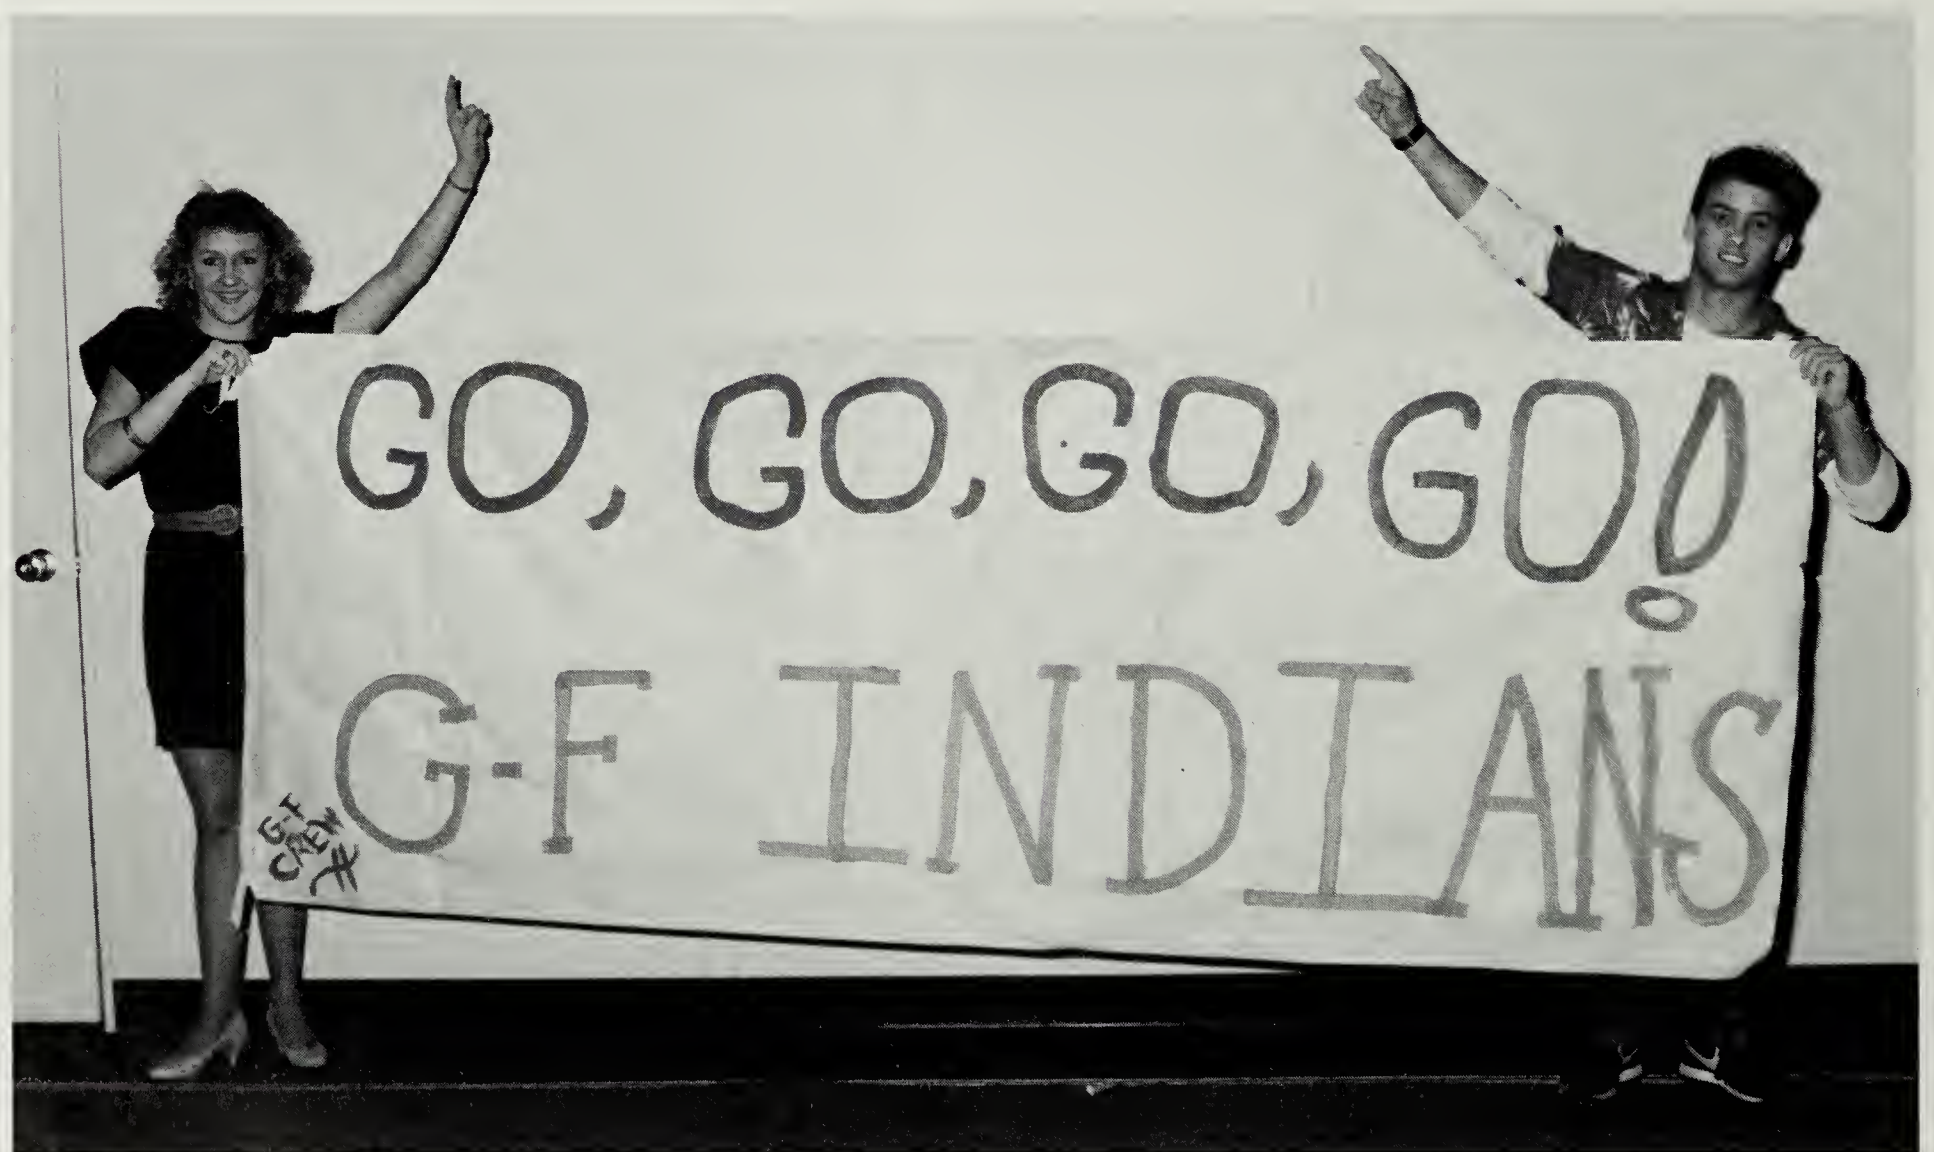 GO, GO, GO, GO!
G-F INDIANS
G-F
CREW
#